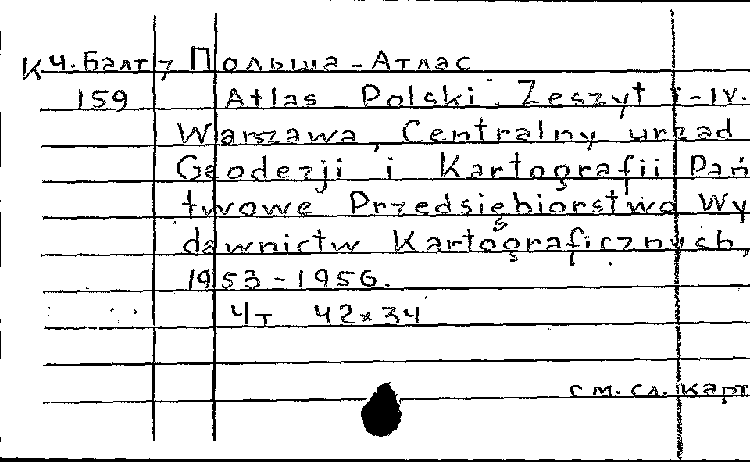 Кч. Балт, Польша - Атлас
159 Atlas Polski. Zeszyt I-IV.
Warszawa, Centralny urzad
Geodezji i Kartografii Pań
twowe Przedsiębiorstwo Wy
dawnictw Kartograficznych,
1953-1956.
4т 42×34
см. сл. карт